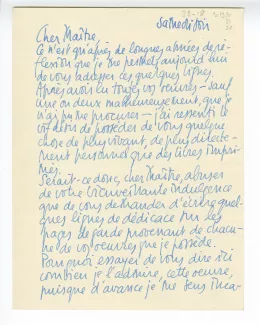 samedi soir
Cher Maître,
Ce n'est qu'après de longues années de ré-
flexion que je me permets aujourd'hui
de vous adresser ces quelques lignes.
Après avoir lu toutes vos œuvres – sauf
une ou deux malheureusement, que je
n'ai pu me procurer – j'ai ressenti ce
soir de posséder de vous quelque
chose de plus vivant, de plus directe-
ment personnel que des livres impri-
més.
Serait-ce donc, cher Maître, abuser
de votre bienveillante indulgence
que de vous demander d'écrire quel-
ques lignes de dédicace sur les
pages de garde provenant de chacu-
ne de vos œuvres que je possède.
Pourquoi essayer de vous dire ici
combien je l'admire, cette œuvre,
puisque d'avance je me sens inca-